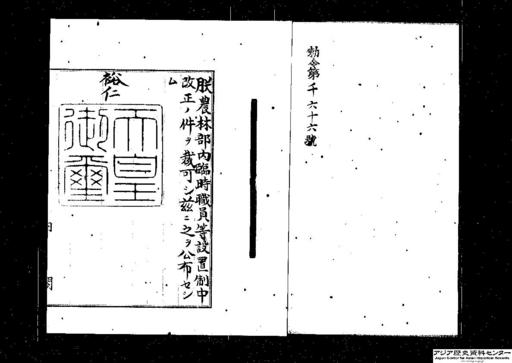 勅令第千六十六號
朕農林部內臨時職員等設置制中
改正ノ件ヲ裁可シ玆ニ之ヲ公布セシ
ム
裕仁
天皇
御璽
内閣
アジア歴史資料センター
Japan Center for Asian Historical Records